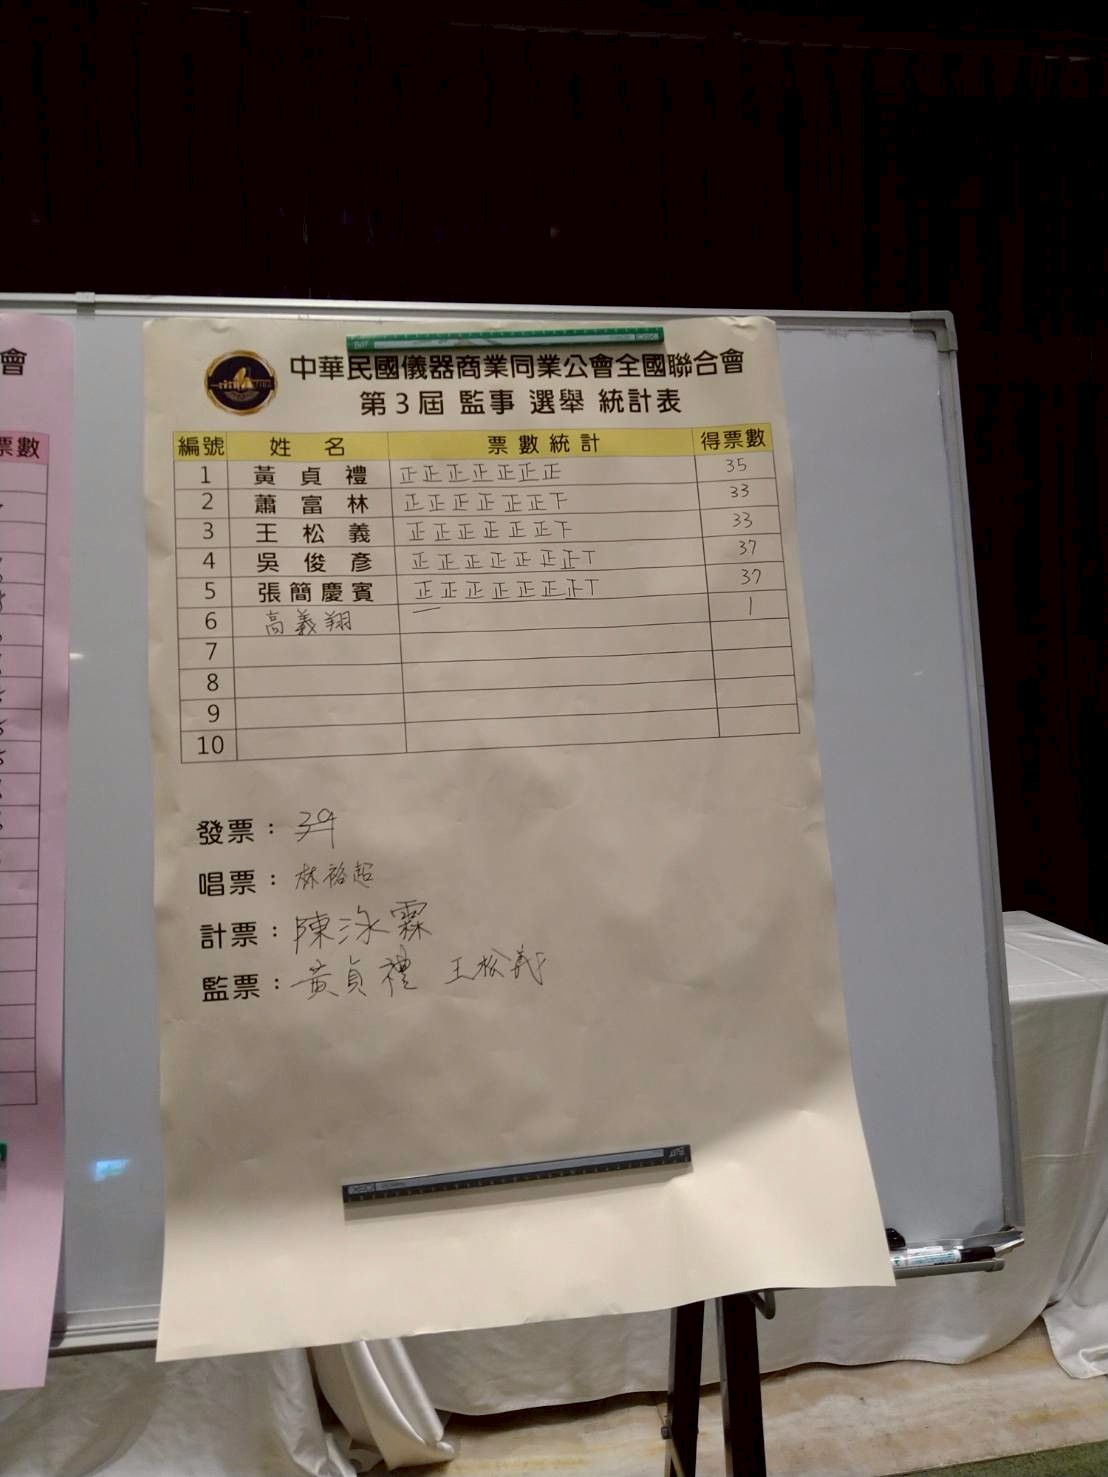 會
票數
中華民國儀器商業同業公會全國聯合會
第3屆 監事 選舉 統計表
編號 姓名 票數統計 得票數
1 黃貞禮 正正正正正正正 35
2 蕭富林 正正正正正正下 33
3 王松義 正正正正正正下 33
4 吳俊彥 正正正正正正正丅 37
5 張簡慶賓 正正正正正正正丅 37
6 高義翔 一 1
7
8
9
10
發票：39
唱票：林裕超
計票：陳泳霖
監票：黃貞禮 王松義